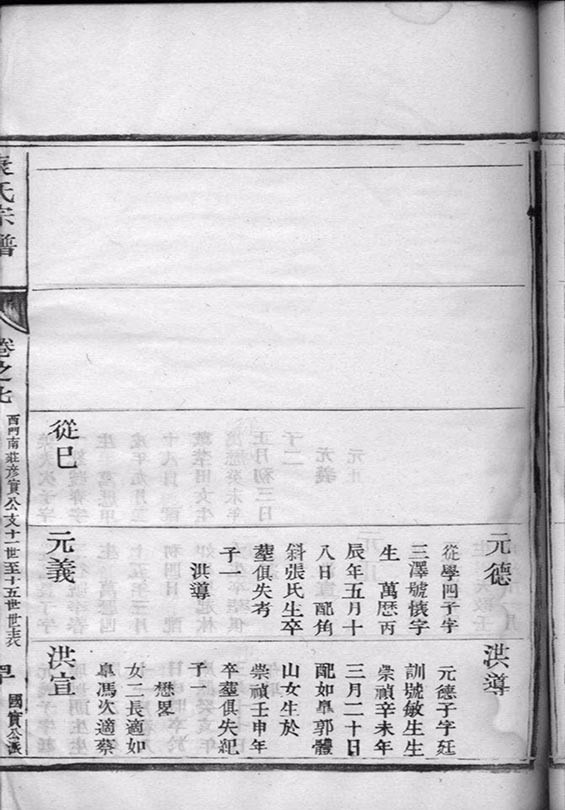 元德
從學四子字
三澤號懷字
生　萬厯丙
辰年五月十
八日　配角
斜張氏生卒
塟俱失考
子一
洪導
洪導
元德子字廷
訓號敏生生
崇禎辛未年
三月二十日
配如臯郭體
山女生於
崇禎壬申年
卒塟俱失紀
子一
懋畧
女二長適如
臯馮次適蔡
從巳
元義
洪宣
袁氏宗譜
卷之七
西門南莊彦實公支十一世至十五世世表
國賓公派